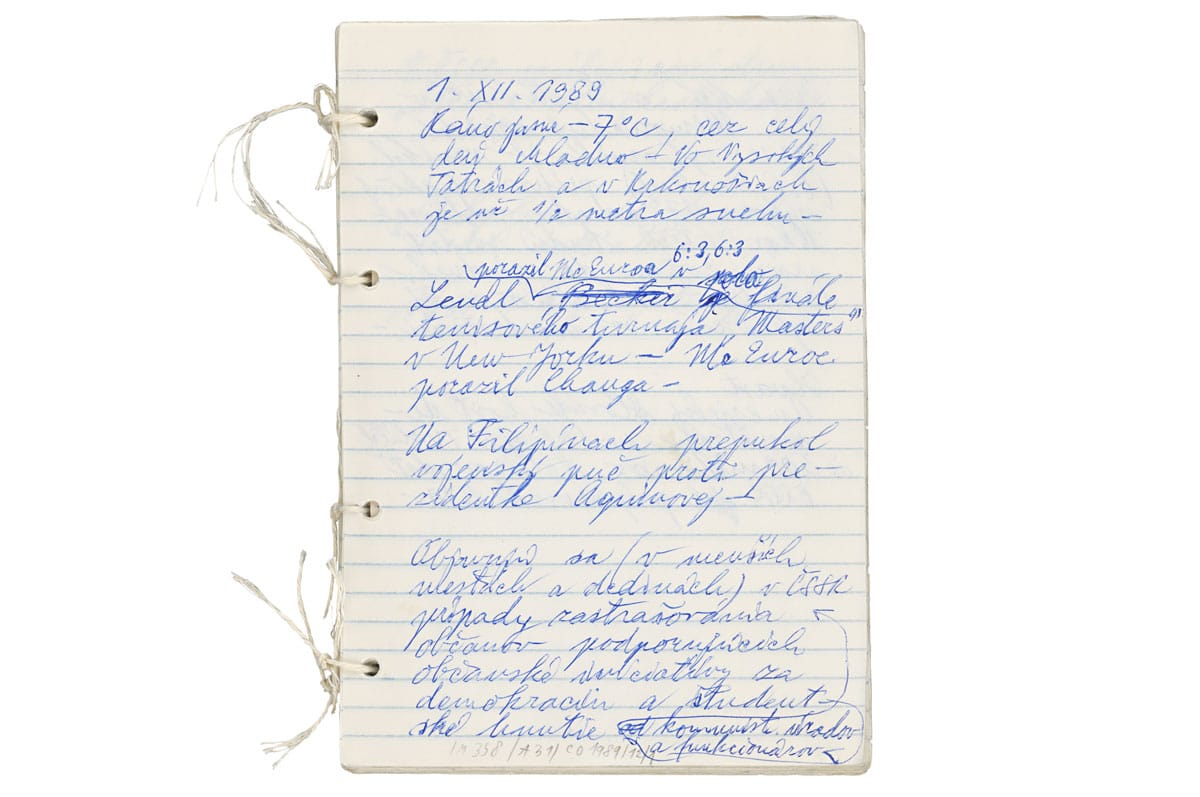 1. XII. 1989
Ráno jasné -7°C, cez celý
deň chladno - Vo Vysokých
Tatrách a v Krkonošiach
je už 1/2 metra snehu -
porazil Mc Enroa v 6:3, 6:3 polo
Lendl Becker finále
tenisového turnaja „Masters"
v New Yorku - Mc Enroe
porazil Changa -
Na Filipínach prepukol
vojenský puč proti pre-
zidentke Aquinovej -
Objavujú sa (v menších
mestách a dedinách) v ČSSR
prípady zastrašovania
občanov podporujúcich
občianské iniciatívy za
demokraciu a študent-
ské hnutie od komunist. úradov
a funkcionárov